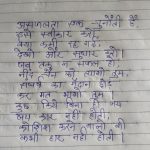 असफलता एक चुनौती है
इसे स्वीकार करो,
क्या कमी रह गई,
देखो और सुधार करो।
जब तक न सफल हो,
नींद चैन को त्यागो तुम,
संघर्ष का मैदान छोड़
कर मत भागो तुम।
कुछ किये बिना ही जय
जय कार नहीं होती,
कोशिश करने वालों की
कभी हार नहीं होती।